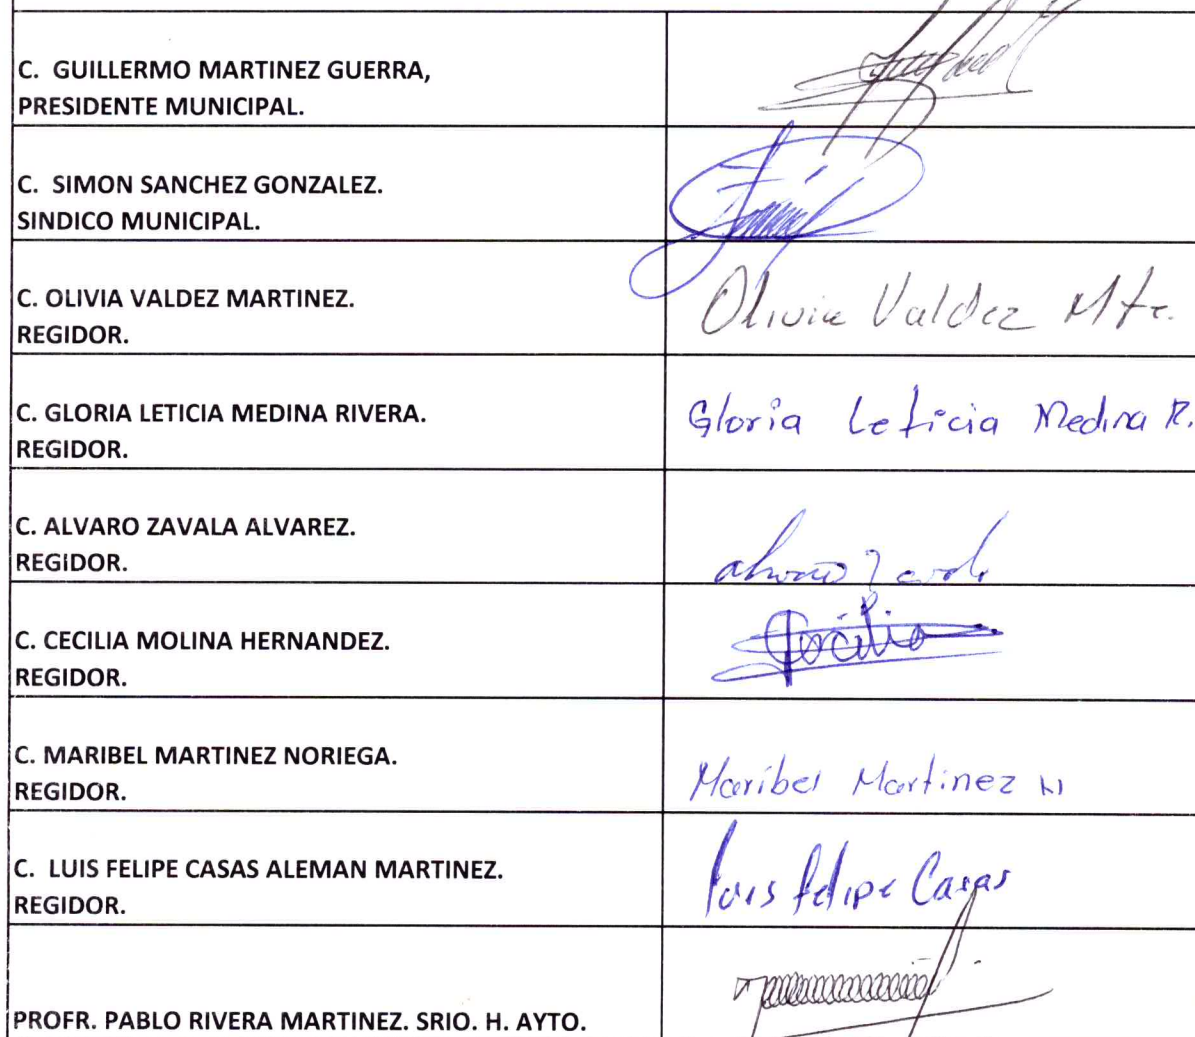 C. GUILLERMO MARTINEZ GUERRA,
PRESIDENTE MUNICIPAL.
C. SIMON SANCHEZ GONZALEZ.
SINDICO MUNICIPAL.
C. OLIVIA VALDEZ MARTINEZ.
REGIDOR.
Olivia Valdez Mtz.
C. GLORIA LETICIA MEDINA RIVERA.
REGIDOR.
Gloria Leticia Medina R.
C. ALVARO ZAVALA ALVAREZ.
REGIDOR.
C. CECILIA MOLINA HERNANDEZ.
REGIDOR.
Cecilia
C. MARIBEL MARTINEZ NORIEGA.
REGIDOR.
Maribel Martinez N
C. LUIS FELIPE CASAS ALEMAN MARTINEZ.
REGIDOR.
luis felipe Casas
PROFR. PABLO RIVERA MARTINEZ. SRIO. H. AYTO.